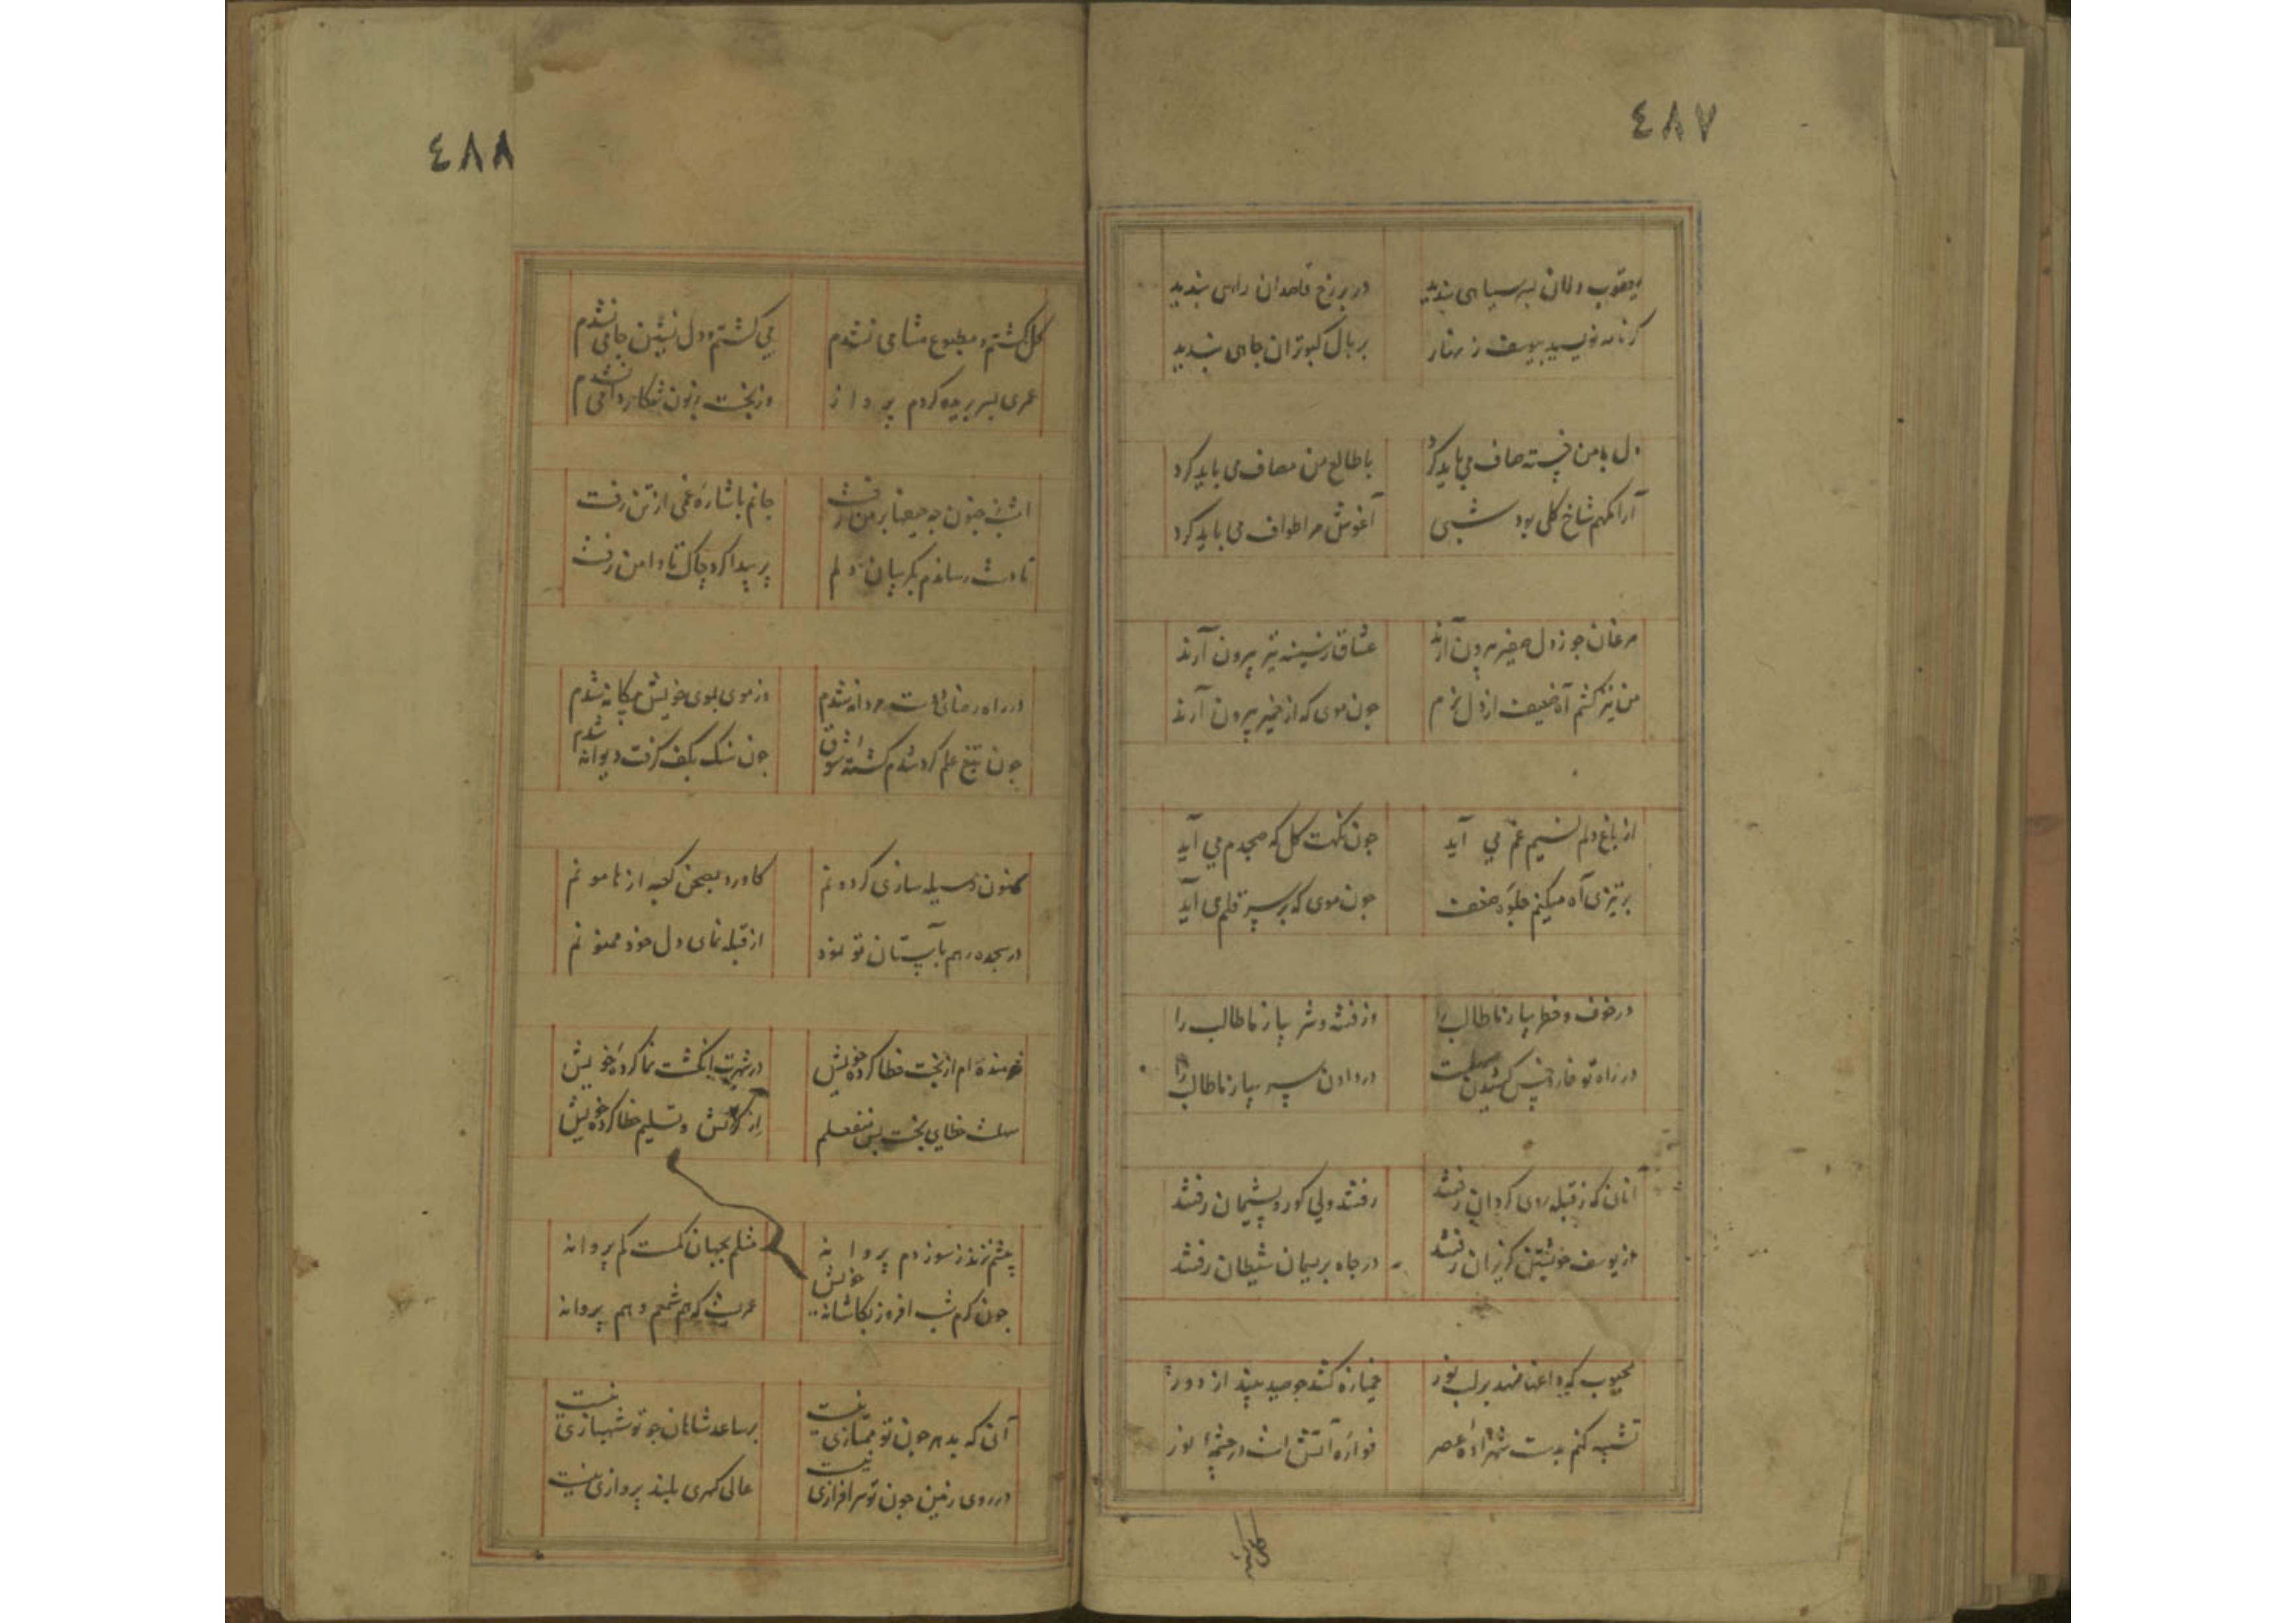 ٤٨٧
در برزخ قاصدان راهی بندید
کر نامه نویسید بیوسف زنهار بر بال کبوتران جاهی بندید
دل با من خسته صاف می باید کرد با طالع من مصاف می باید کرد
آرامکهم شاخ کلی بود شبی آغوش مرا طواف می باید کرد
مرغان جو ز دل صفیر بیرون آرند عشاق ز سینه تیر بیرون آرند
من نیز کشم آه ضعیف از دل نرم جون موی که از خمیر بیرون آرند
از باغ دلم نسیم غم می آید جون نکهت کل که صبحدم می آید
بر تیزی آه میکنم جلوه ضعف جون موی که بر سر قلم می آید
در خوف و خطر بیازما طالب را وز فتنه و شر بیازما طالب را
در راه تو خار و خس کشیدن سهلست در دادن سر بیازما طالب را
آنان که ز قبله روی کردان رفتند رفتند ولی کور و پشیمان رفتند
از یوسف خویشتن کریزان رفتند در جاه بریسمان شیطان رفتند
محبوب که داغها نهد بر لب خمیازه کشد جو صید بیند از دور
تشبیه کنم بدست شهزاده عصر فواره آتش است در چشمه نور
٤٨٨
کل کشتم و مطبوع مشامی نشدم می کشتم و دل نشین جامی نشدم
عمری بسر بریده کردم پرواز وز بخت زبون شکار دامی نشدم
امشب جنون جه جفا بر من رفت جانم باشاره غمی از تن رفت
تا دست رساندم بکریبان دلم پر پیدا کرد چاک تا دامن رفت
در راه رضای دوست مردانه شدم وز موی بموی خویش بیکانه شدم
جون تیغ علم کرد شدم کشته شوق جون سنک بکف کرفت دیوانه شدم
وسیله سازی کردونم کاورد بصحن کعبه از هامونم
در سجده رهم بآستان تو نمود از قبله نمای دل خود ممنونم
شرمنده ام از بخت خطا کرده خویش در شهرت انکشت نما کرده خویش
خطای بخت بس منفعلم از کرنش و تسلیم خطا کرده خویش
چشم نزند ز سوز دم پروانه مثلم بجهان کمست کم پروانه
جون کرم شب افروز بکاشانه خویش عمریست که هم شمعم و هم پروانه
آنی که بدهر جون تو ممتازی نیست بر ساعد شاهان جو تو شهبازی نیست
در روی زمین جون تو سرافرازی نیست عالی کهری بلند پروازی نیست